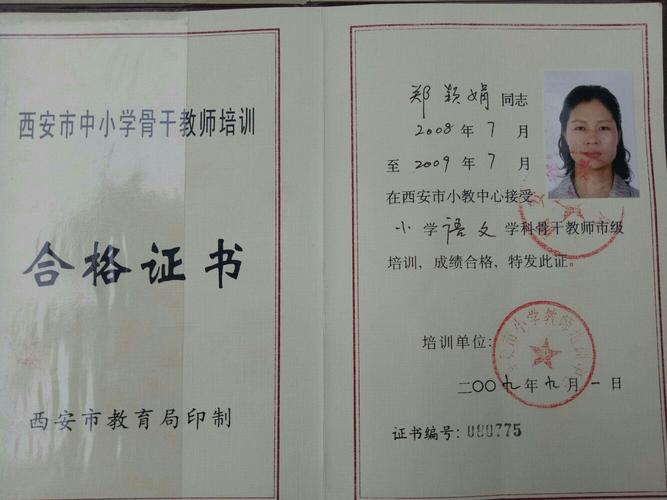 西安市中小学骨干教师培训
合格证书
西安市教育局印制
郑颖娟 同志
2008 年 7 月
至 2009 年 7 月
在西安市小教中心接受
小学语文学科骨干教师市级
培训，成绩合格，特发此证。
培训单位：
二〇〇九年九月一日
证书编号：080775